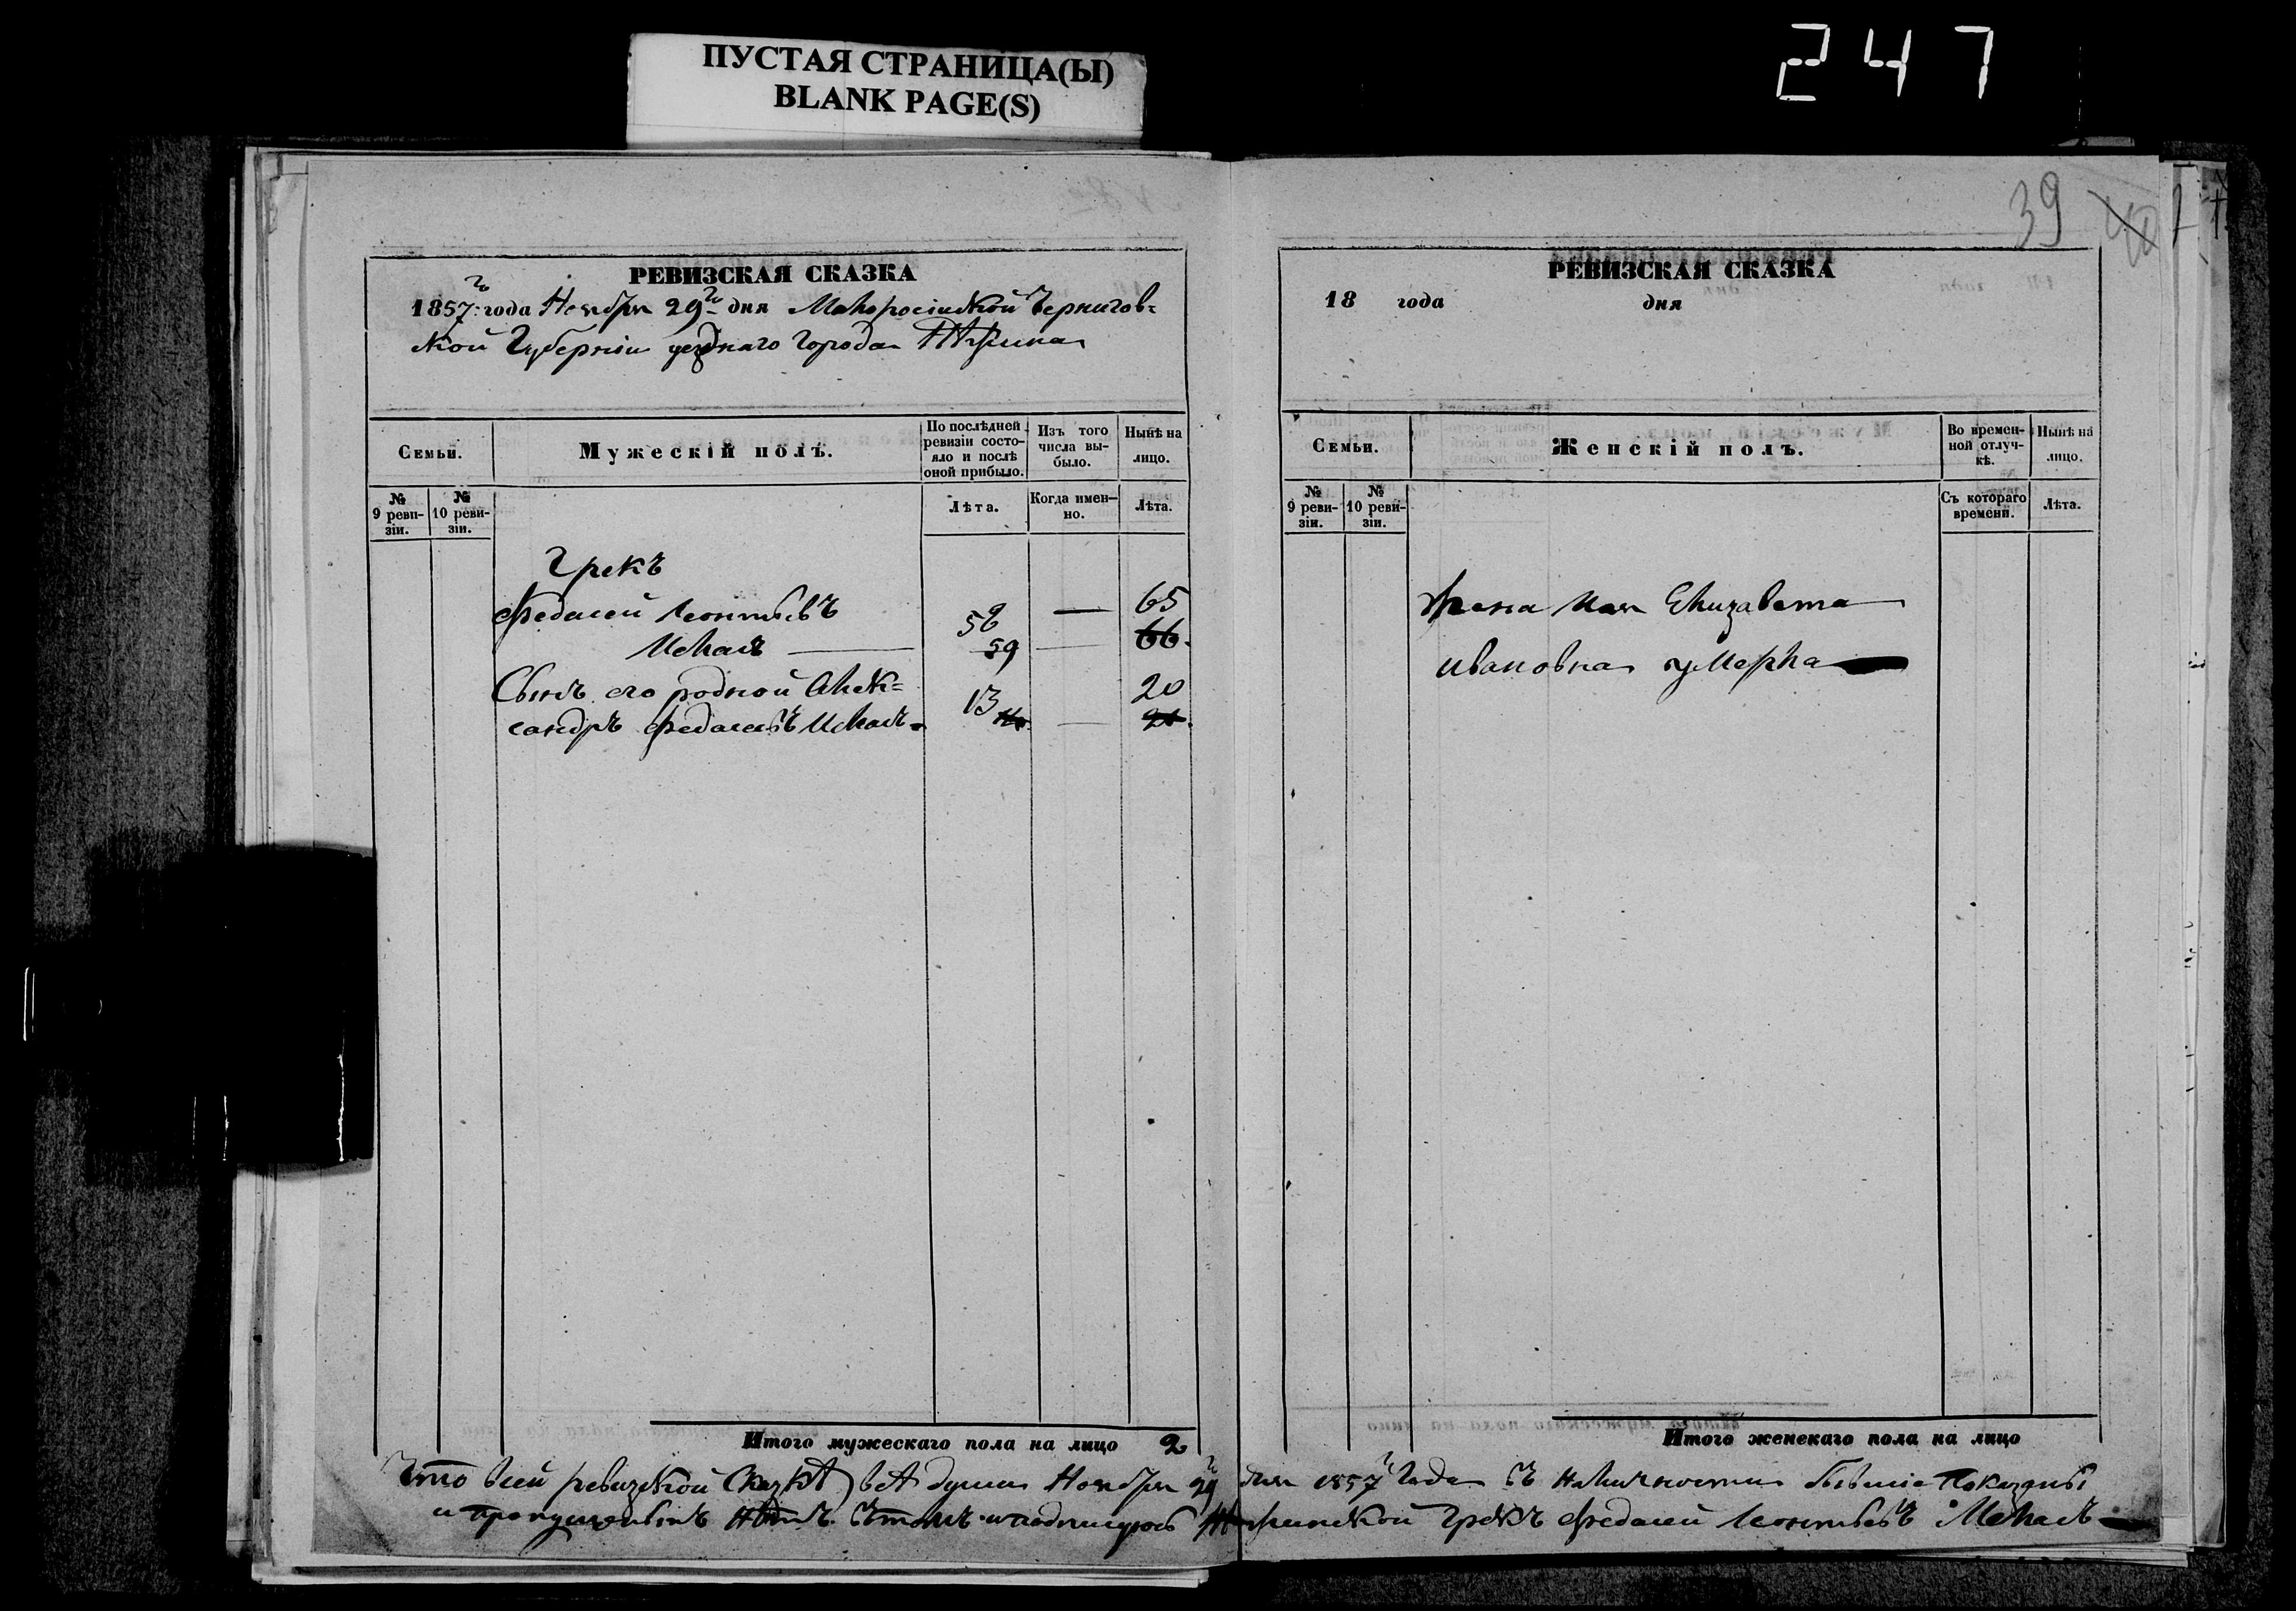 ПУСТАЯ СТРАНИЦА(Ы)
BLANK PAGE(S)
247
РЕВИЗСКАЯ СКАЗКА
1857го года Ноября 29го дня Малоросійской Чернигов=
ской Губерніи уезднаго города Нѣжина
Семьи.
Мужескій полъ.
По послѣдней ревизіи состо-
яло и послѣ
оной прибыло.
Изъ того
числа вы-
было.
Нынѣ на
лицо.
№
9 реви-
зіи.
№
10 реви-
зіи.
Лѣта.
Когда имен-
но.
Лѣта.
Грекъ
Федасей Леонтьевъ
58 — 65
59 66.
Сынъ его родной Алек=
13 20
сандръ Федасеевъ
Итого мужескаго пола на лицо 2
39
РЕВИЗСКАЯ СКАЗКА
18 года дня
Семьи.
Женскій полъ.
Во времен-
ной отлуч-
кѣ.
Нынѣ на
лицо.
№
9 реви-
зіи.
№
10 реви-
зіи.
Съ котораго
времени.
Лѣта.
Жена моя Елизавета
Ивановна умерла
Итого женскаго пола на лицо
Что в сей ревизской Сказкѣ всѣ души Ноября 29го дня 1857го Года въ наличности бывшіе показаны
и пропущенныхъ нѣтъ. Въ томъ и подписуюсь Нѣжинской Грекъ Федасей Леонтьевъ